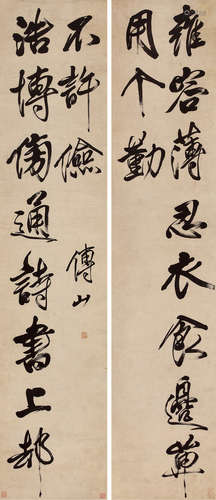 雍容薄忍衣食邊單
用个勤
不許儉
浩博傍通詩書上却
傅山